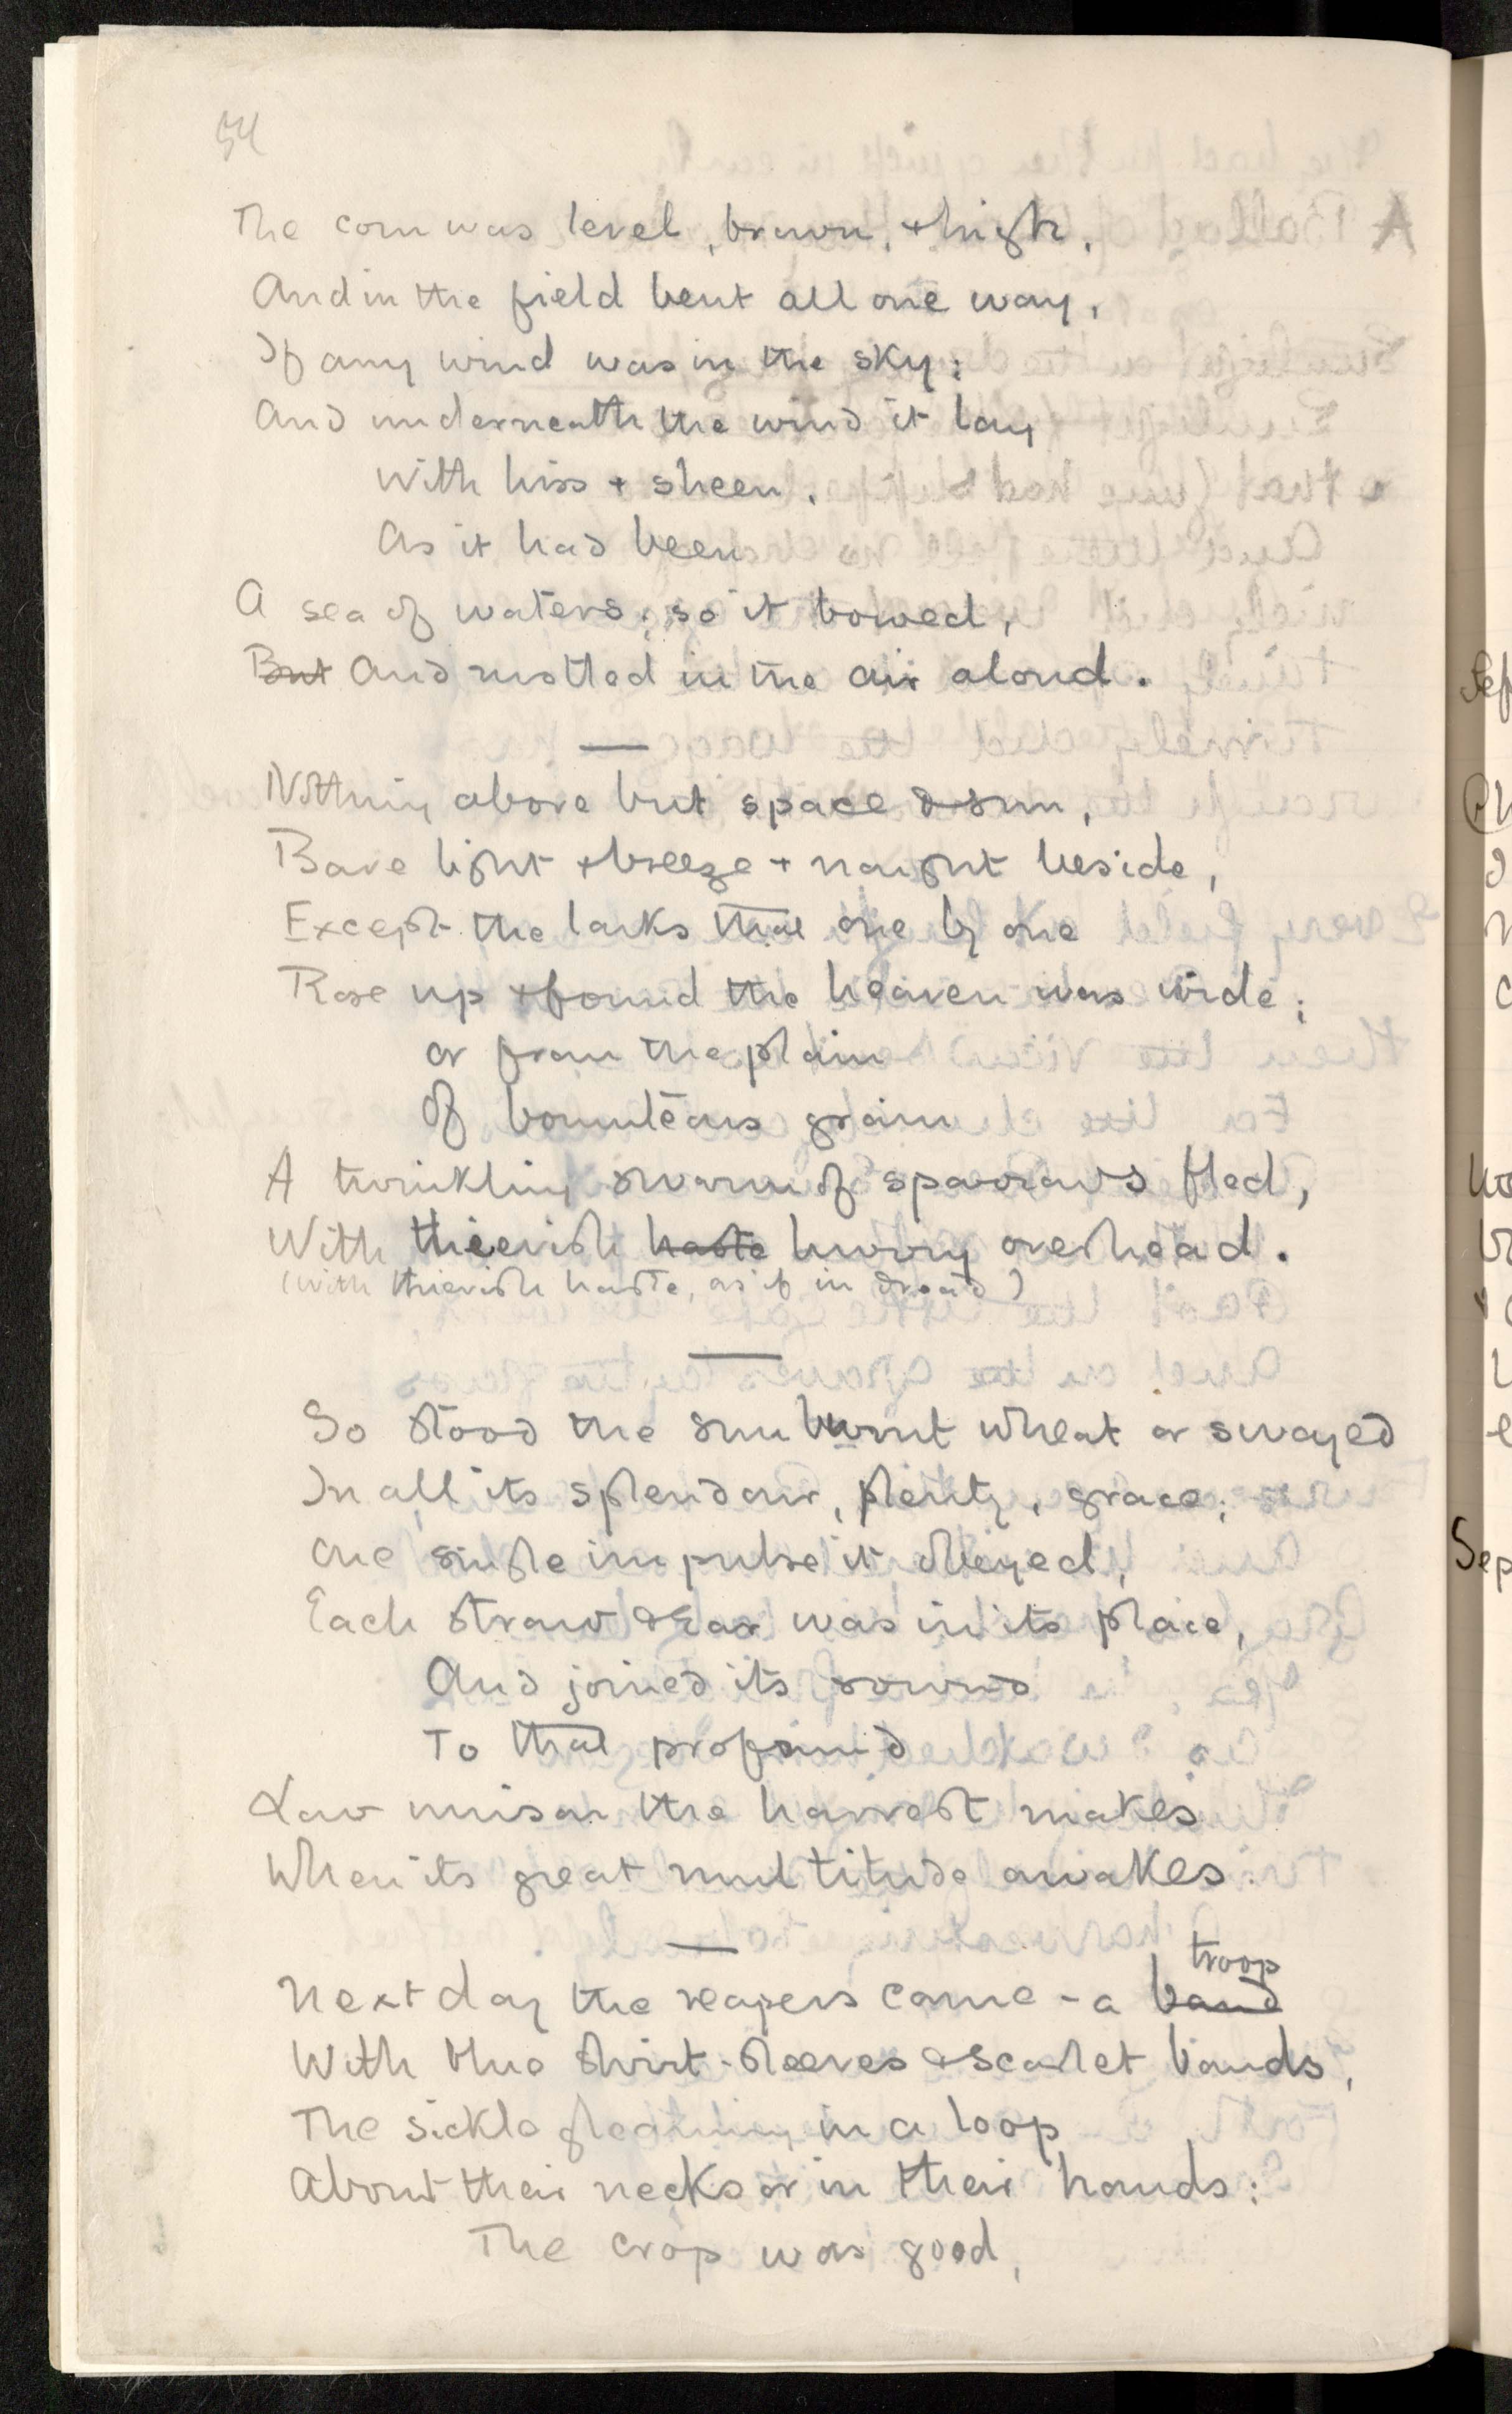 54
The corn was level, brown, + high,
And in the field bent all one way,
If any wind was in the sky;
And underneath the wind it lay
With hiss + sheen,
As it had been
A sea of waters; so it bowed,
But And rustled in the air aloud.
Nothing above but space & sun,
Bare light + breeze + naught beside,
Except the larks that one by one
Rose up + found the heaven was wide;
Or from the plain
Of bounteous grain
A twinkling swarm of sparrows fled,
With thievish haste hurry overhead.
(With thievish haste, as if in dread)
So stood the sunburnt wheat or swayed
In all its splendour, plenty, grace;
One single impulse it obeyed,
Each straw & ear was in its place,
And joined its sound
To that profound
Low unison the harvest makes
When its great multitude awakes.
troop
Next day the reapers came - a band
With blue shirt-sleeves & scarlet bands,
The sickle gleaming in a loop
About their necks or in their hands:
The crop was good,